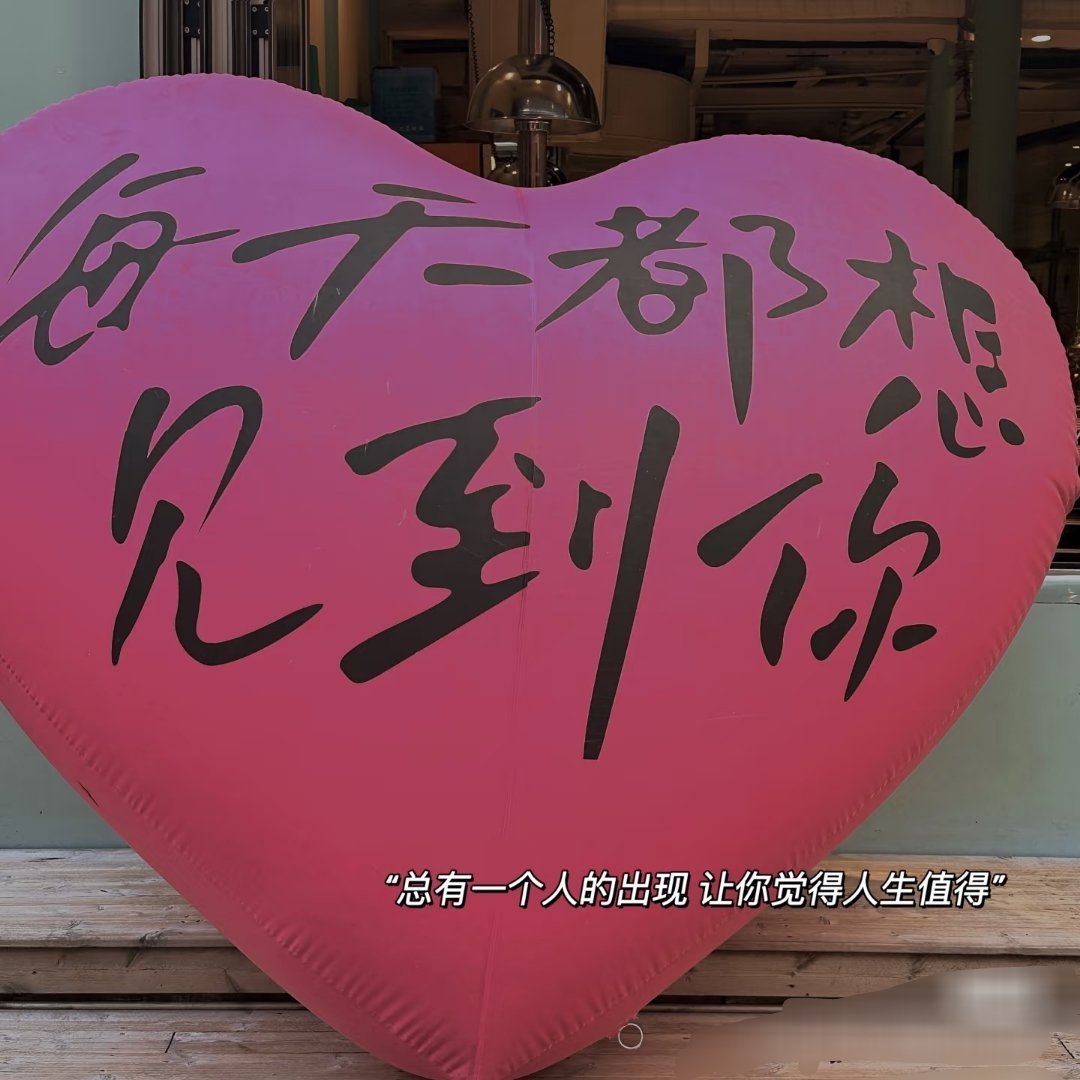 每天都想
见到你
“总有一个人的出现 让你觉得人生值得”